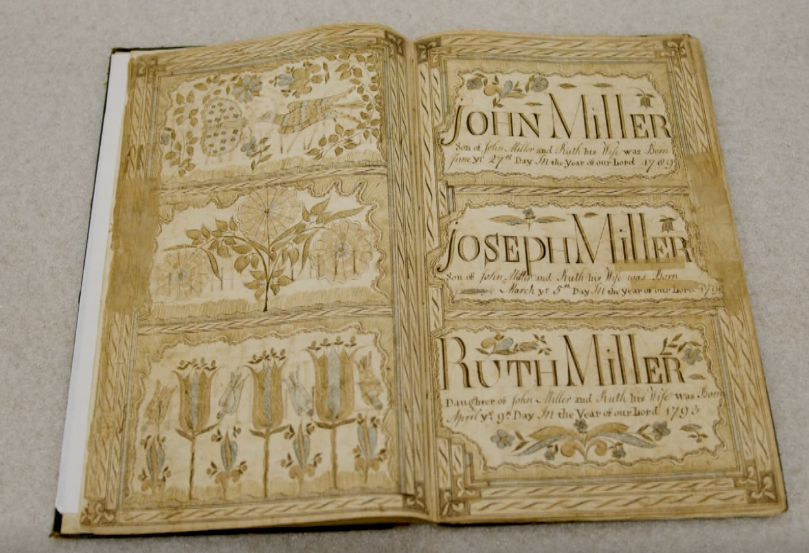 John Miller
Son of John Miller and Ruth his Wife was Born
June yᵉ 27ᵗʰ Day In the Year of our Lord 1789
Joseph Miller
Son of John Miller and Ruth his Wife was Born
March yᵉ 5ᵗʰ Day In the Year of our Lord
Ruth Miller
Daughter of John Miller and Ruth his Wife was Born
April yᵉ 9ᵗʰ Day In the Year of our Lord 1793